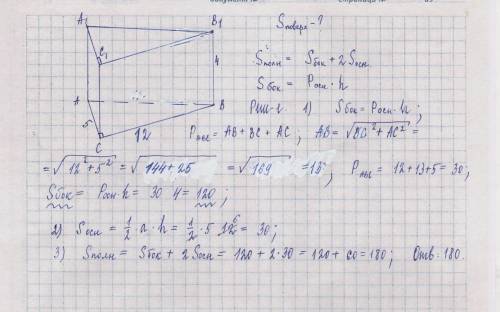 A₁ B₁ Sповерх - ?
C₁ Sполн = Sбок + 2 Sосн
4 Sбок = Pосн · h
A B Реш-е 1) Sбок = Pосн · h ;
5 12 Pосн = AB + BC + AC ; AB = √BC² + AC² =
C
= √12² + 5² = √144 + 25 = √169 = 13 ; Pосн = 12 + 13 + 5 = 30 ;
Sбок = Pосн · h = 30 · 4 = 120 ;
2) Sосн = 1/2 · a · h = 1/2 · 5 · 12 6 = 30 ;
3) Sполн = Sбок + 2 Sосн = 120 + 2 · 30 = 120 + 60 = 180 ; Отв: 180.